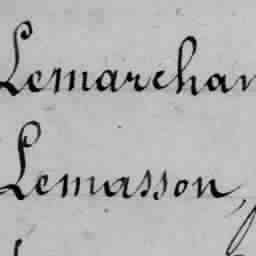 Lemarchan
Lemasson,